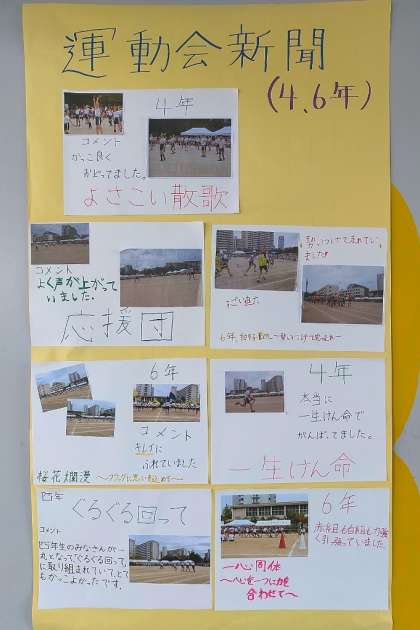 運動会新聞
(4、6年)
4年
コメント
かっこ良く
おどってました。
よさこい散歌
コメント
よく声が上がって
いました。
応援団
ました!!
6年
コメント
キレイに
ふれていました
桜花爛漫
4年
本当に
一生けん命で
がんばってました。
一生けん命
四年
くるぐる回って
コメント
四年生のみなさんが一
丸となって「ぐるぐる回って」
に取り組まれていて、とて
もかっこよかったです。
6年
赤組も白組も力強
く引っ張っていました。
一心同体
〜心を一つに力を
合わせて〜